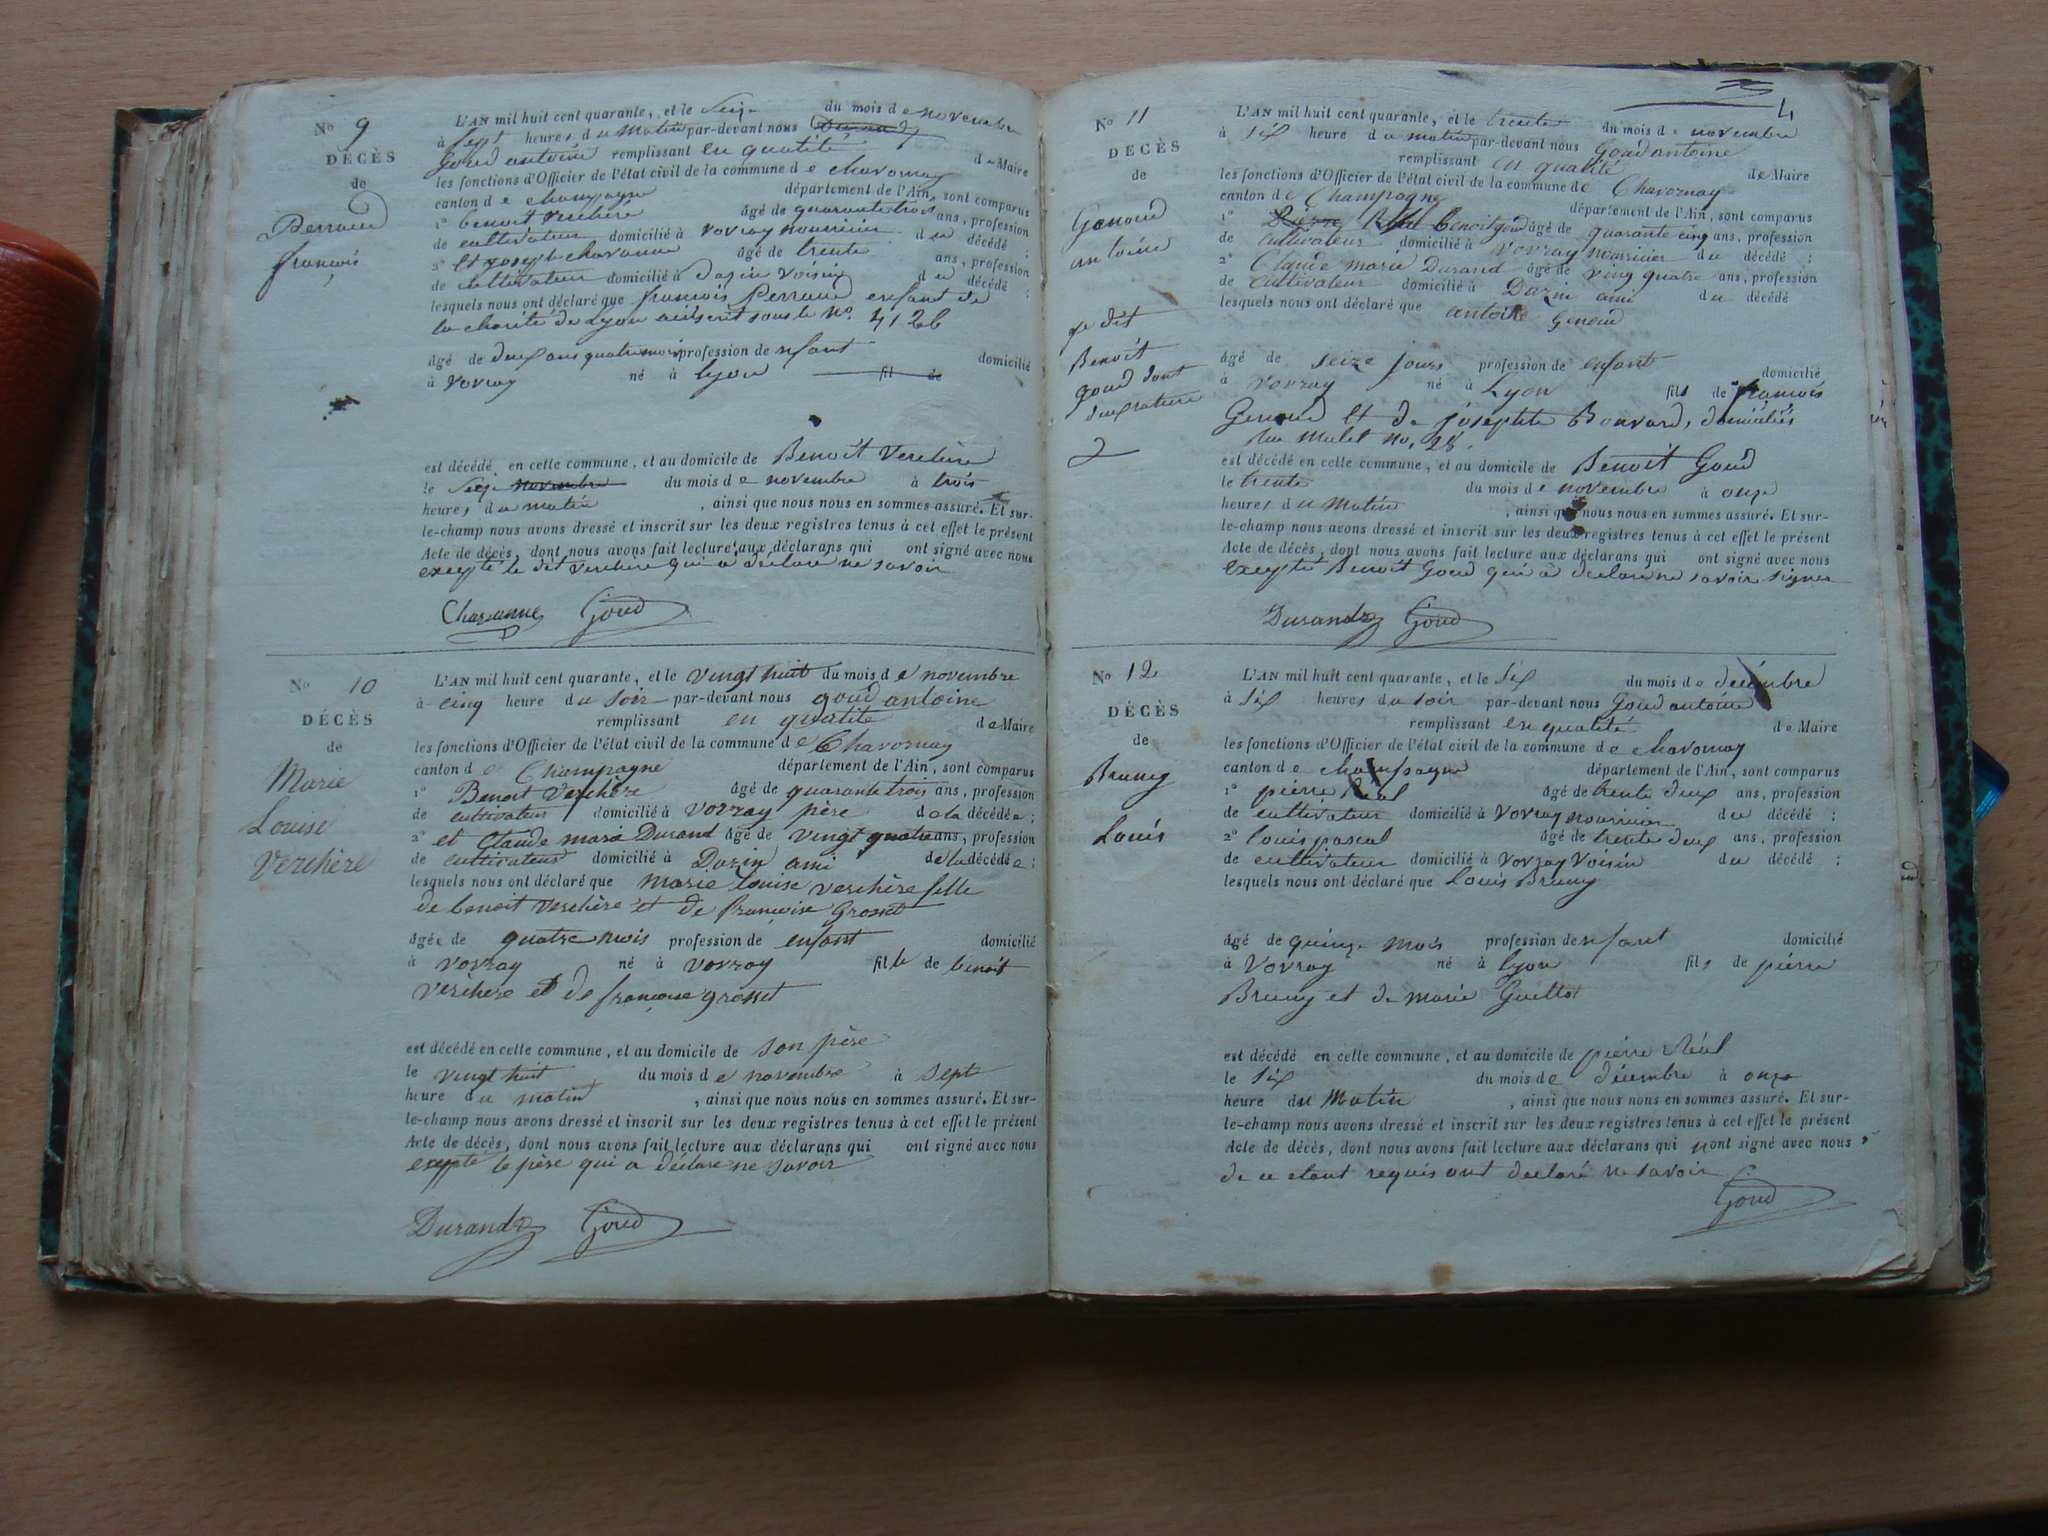 N° 9
DÉCÈS
de
Perraud
françois
L'AN mil huit cent quarante, et le Seize du mois de novembre
à sept heures du matin par-devant nous
Goud antoine remplissant en qualité de Maire
les fonctions d'Officier de l'état civil de la commune de chavornay
canton de champagne département de l'Ain, sont comparus
1° benoit verchère âgé de quarante trois ans, profession
de cultivateur domicilié à vovray nourricier du décédé ;
2° et joseph chavanne âgé de trente ans, profession
de cultivateur domicilié à dazin voisin du décédé ;
lesquels nous ont déclaré que françois Perraud enfant de
la charité de Lyon inscrit sous le N°. 4126
âgé de deux ans quatre mois profession de enfant domicilié
à vovray né à lyon fil de
est décédé en cette commune, et au domicile de Benoit Verchère
le Seize novembre du mois de novembre à trois
heures du matin , ainsi que nous nous en sommes assuré. Et sur-
le-champ nous avons dressé et inscrit sur les deux registres tenus à cet effet le présent
Acte de décès, dont nous avons fait lecture aux déclarans qui ont signé avec nous
excepté le dit verchere qui a déclaré ne savoir
Chavanne Goud
N° 10
DÉCÈS
de
Marie
Louise
Verchère
L'AN mil huit cent quarante, et le vingt huit du mois de novembre
à cinq heure du soir par-devant nous goud antoine
remplissant en qualité de Maire
les fonctions d'Officier de l'état civil de la commune de Chavornay
canton de Champagne département de l'Ain, sont comparus
1° Benoit Verchère âgé de quarante trois ans, profession
de cultivateur domicilié à vovray père de la décédée ;
2° et Claude marie Durand âgé de vingt quatre ans, profession
de cultivateur domicilié à Dazin ami de la décédée ;
lesquels nous ont déclaré que marie louise verchère fille
de benoit verchère et de françoise Grosset
âgée de quatre mois profession de enfant domicilié
à vovray né à vovray fille de benoit
verchere et de françoise grosset
est décédé en cette commune, et au domicile de son père
le vingt huit du mois de novembre à sept
heure du matin , ainsi que nous nous en sommes assuré. Et sur-
le-champ nous avons dressé et inscrit sur les deux registres tenus à cet effet le présent
Acte de décès, dont nous avons fait lecture aux déclarans qui ont signé avec nous
excepté le père qui a déclaré ne savoir
Durand Goud
4
N° 11
DÉCÈS
de
Genoud
antoine
Benoit
goud dont
L'AN mil huit cent quarante, et le trente du mois de novembre
à six heure du matin par-devant nous Goud antoine
remplissant en qualité de Maire
les fonctions d'Officier de l'état civil de la commune de Chavornay
canton de Champagne département de l'Ain, sont comparus
1° Pierre Réal benoit goud âgé de quarante cinq ans, profession
de cultivateur domicilié à vovray nourricier du décédé ;
2° Claude marie Durand âgé de ving quatre ans, profession
de cultivateur domicilié à Dazin ami du décédé
lesquels nous ont déclaré que antoine Genoud
âgé de seize jours profession de enfant domicilié
à vovray né à Lyon fils de françois
Genoud et de josephte Bonvard, domiciliés
Rue Mulet No. 28.
est décédé en cette commune, et au domicile de Benoit Goud
le trente du mois de novembre à onze
heures du Matin , ainsi que nous nous en sommes assuré. Et sur-
le-champ nous avons dressé et inscrit sur les deux registres tenus à cet effet le présent
Acte de décès, dont nous avons fait lecture aux déclarans qui ont signé avec nous
excepté Benoit Goud qui a déclaré ne savoir signer
Durand Goud
N° 12
DÉCÈS
de
Bruny
Louis
L'AN mil huit cent quarante, et le six du mois de décembre
à six heures du soir par-devant nous Goud antoine
remplissant en qualité de Maire
les fonctions d'Officier de l'état civil de la commune de chavornay
canton de champagne département de l'Ain, sont comparus
1° pierre Réal âgé de trente deux ans, profession
de cultivateur domicilié à vovray nourricier du décédé ;
2° louis pascal âgé de trente deux ans, profession
de cultivateur domicilié à vovray voisin du décédé ;
lesquels nous ont déclaré que Louis Bruny
âgé de quinze mois profession de enfant domicilié
à Vovray né à lyon fils de pierre
Bruny et de marie Guillot
est décédé en cette commune, et au domicile de pierre Réal
le six du mois de décembre à onze
heure du Matin , ainsi que nous nous en sommes assuré. Et sur-
le-champ nous avons dressé et inscrit sur les deux registres tenus à cet effet le présent
Acte de décès, dont nous avons fait lecture aux déclarans qui n'ont signé avec nous
de ce étant requis ont déclaré ne savoir
Goud